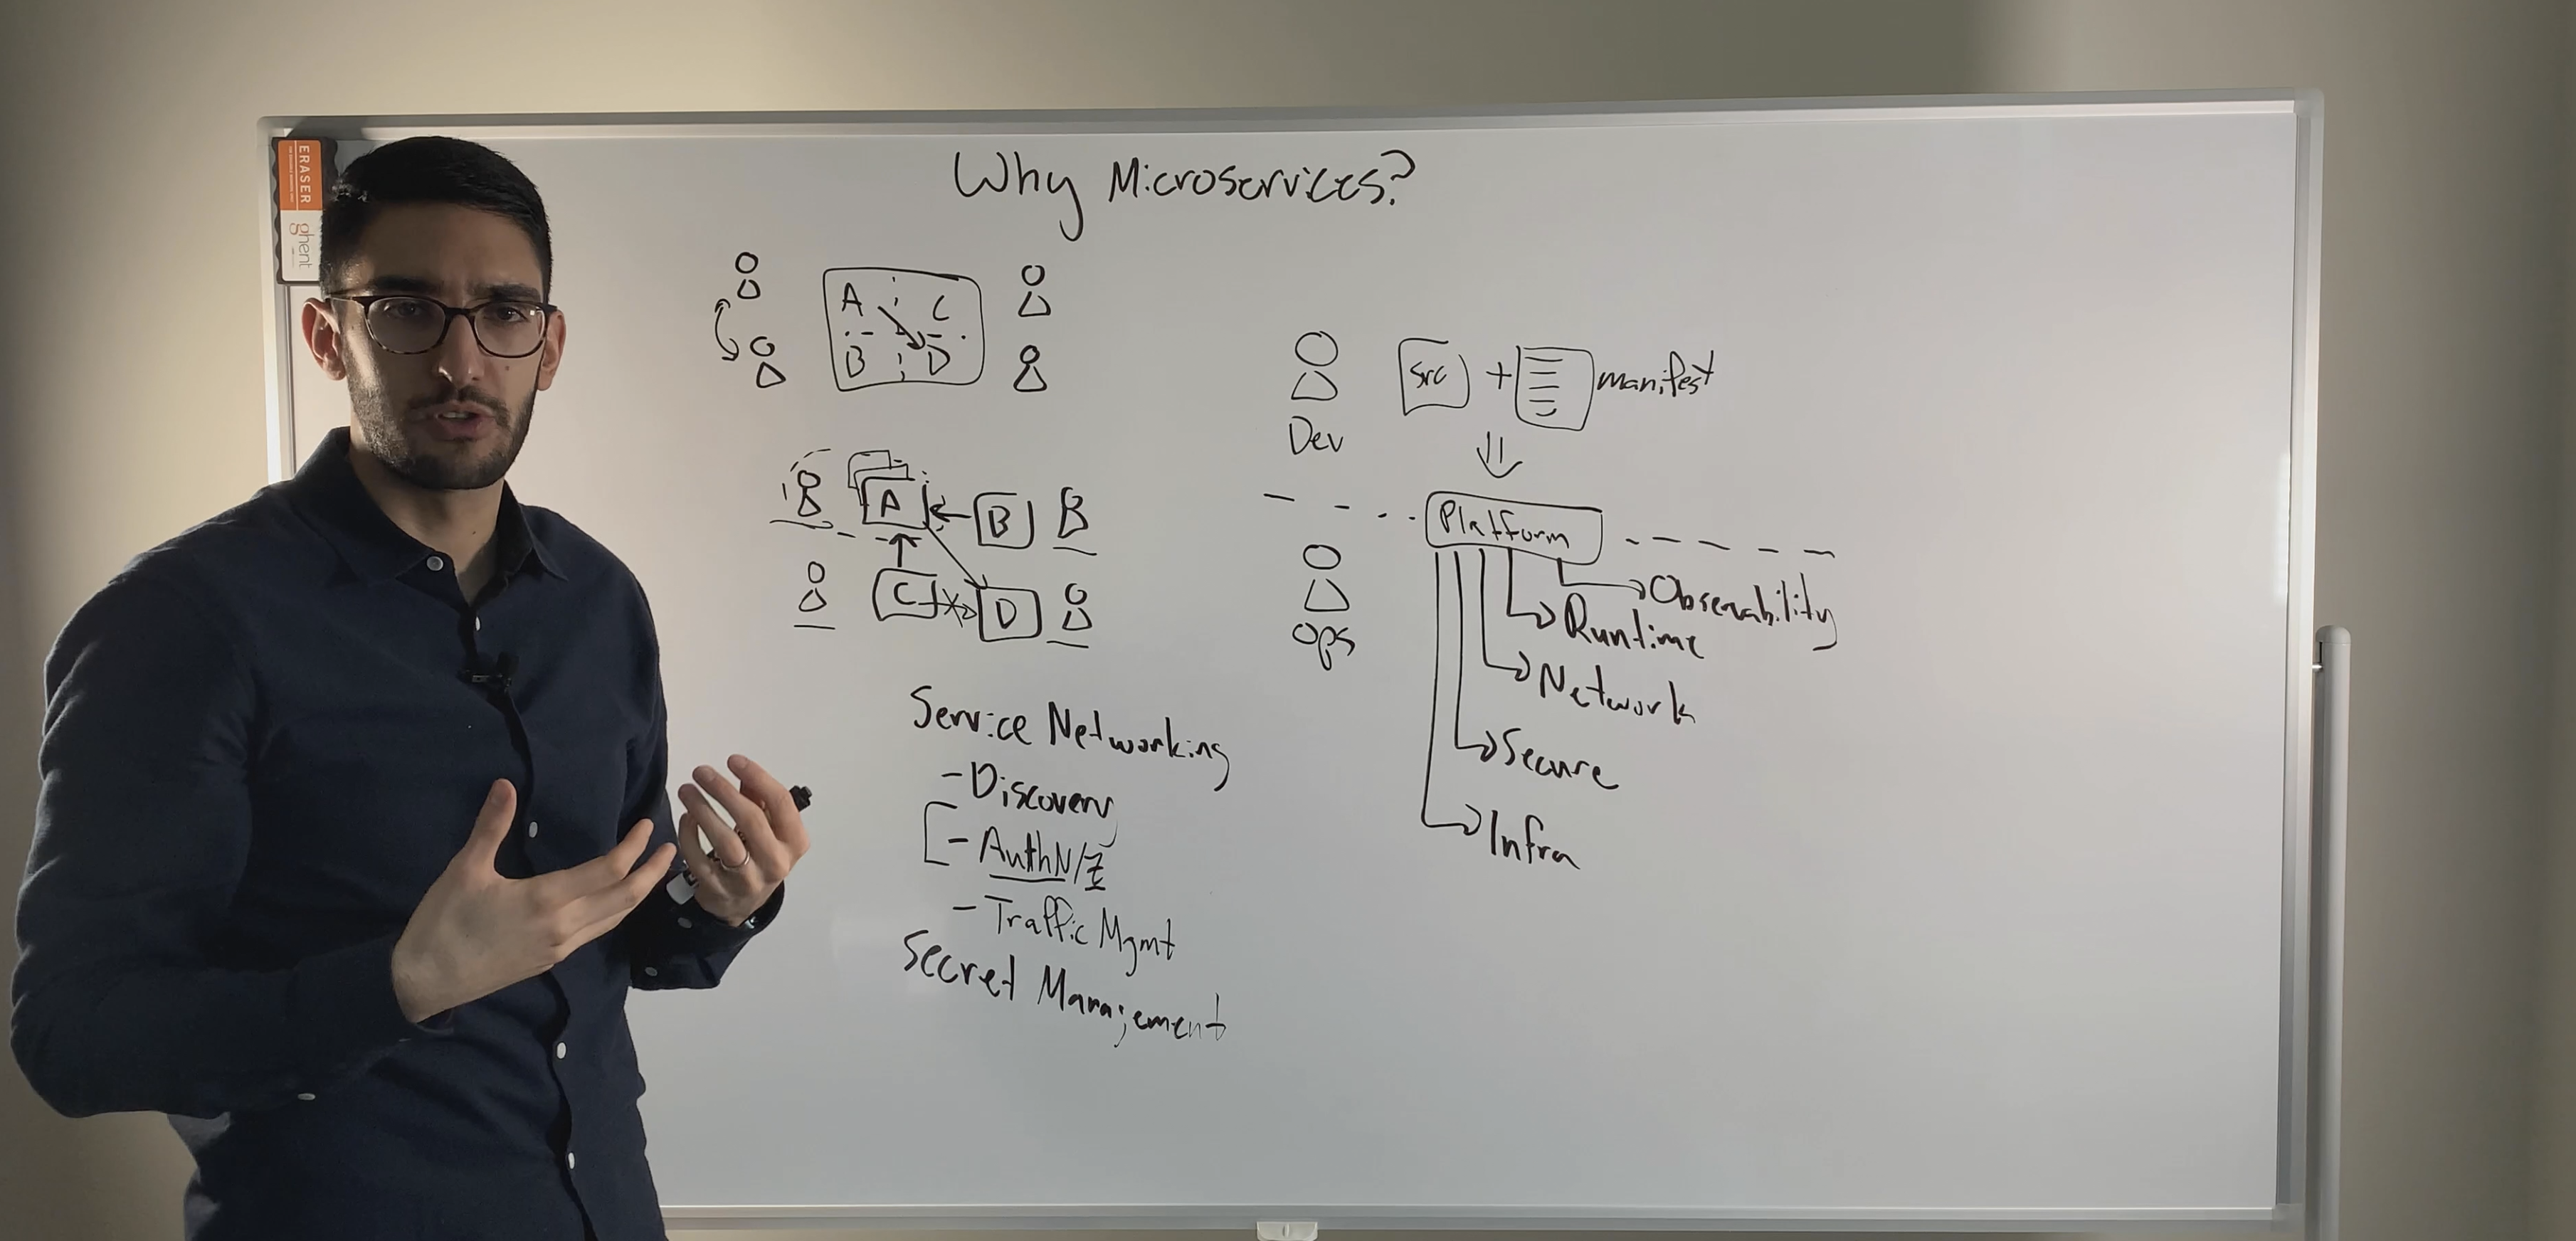 ERASER
ghent
Why Microservices?
A C
B D
A
B
C
D
Service Networking
- Discovery
- AuthN/Z
- Traffic Mgmt
Secret Management
Dev
Src + manifest
Platform
Ops
Observability
Runtime
Network
Secure
Infra